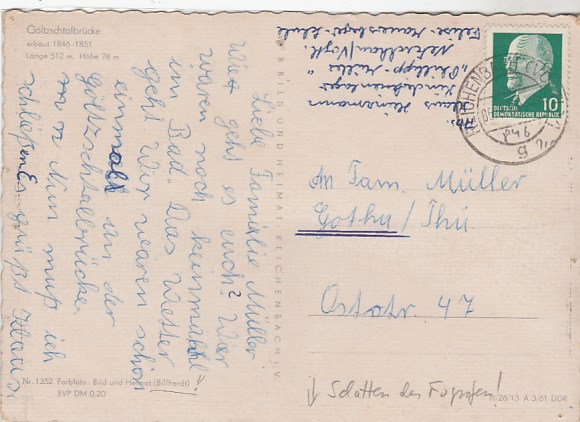 Göltzschtalbrücke
erbaut 1846-1851
Länge 512 m. Höhe 78 m
Liebe Familie Müller
Wie geht es euch? Wir
waren noch keinmahl
im Bad. Das Wetter
geht! Wir waren schon
einmal an der
Göltzschtalbrücke.
Nun muß ich
schließen. Es grüßt Klaus
Abs.
Klaus
Kinderferienlager
"Philipp-Müller"
Netzschkau/Vogtl.
VEB BILD UND HEIMAT REICHENBACH I. V.
DEUTSCHE
DEMOKRATISCHE REPUBLIK
10
REICHENBACH
An Fam. Müller
Gotha/Thü
Ostotr. 47
↓ Schatten des Fotografen!
Nr. 1352 Farbfoto: Bild und Heimat (Billhardt)
EVP DM 0,20
III/26/13 A 3/61 DDR